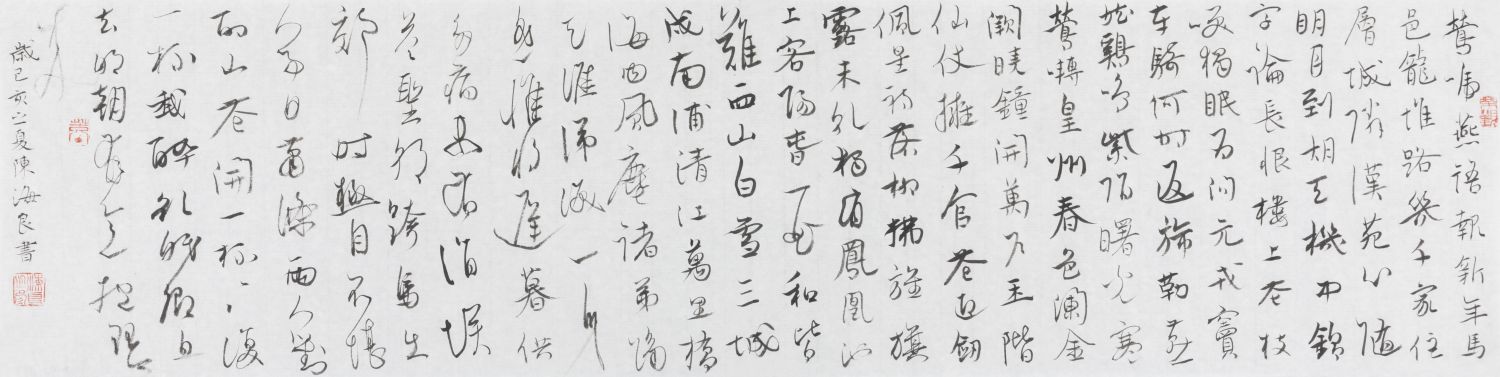 鶯啼燕語報新年馬
邑龍堆路幾千家住
層城隣漢苑心隨
明月到胡天機中錦
字論長恨樓上花枝
笑獨眠為問元戎竇
車騎何時返旆勒燕
然鷄鳴紫陌曙光寒
鶯囀皇州春色瀾金
闕曉鐘開萬户玉階
仙仗擁千官花迎劒
佩星初落柳拂旌旗
露未乾獨有鳳凰池
上客陽春一曲和皆
難西山白雪三城
戍南浦清江萬里橋
海内風塵諸弟隔
天涯涕淚一身
遥惟將遲暮供
多病未有涓埃
答聖朝跨馬出
郊時極目不堪
人事日蕭條兩人對
酌山花開一杯々復
一杯我醉欲眠卿且
去明朝有意抱琴
來
歲己亥之夏陳海良書